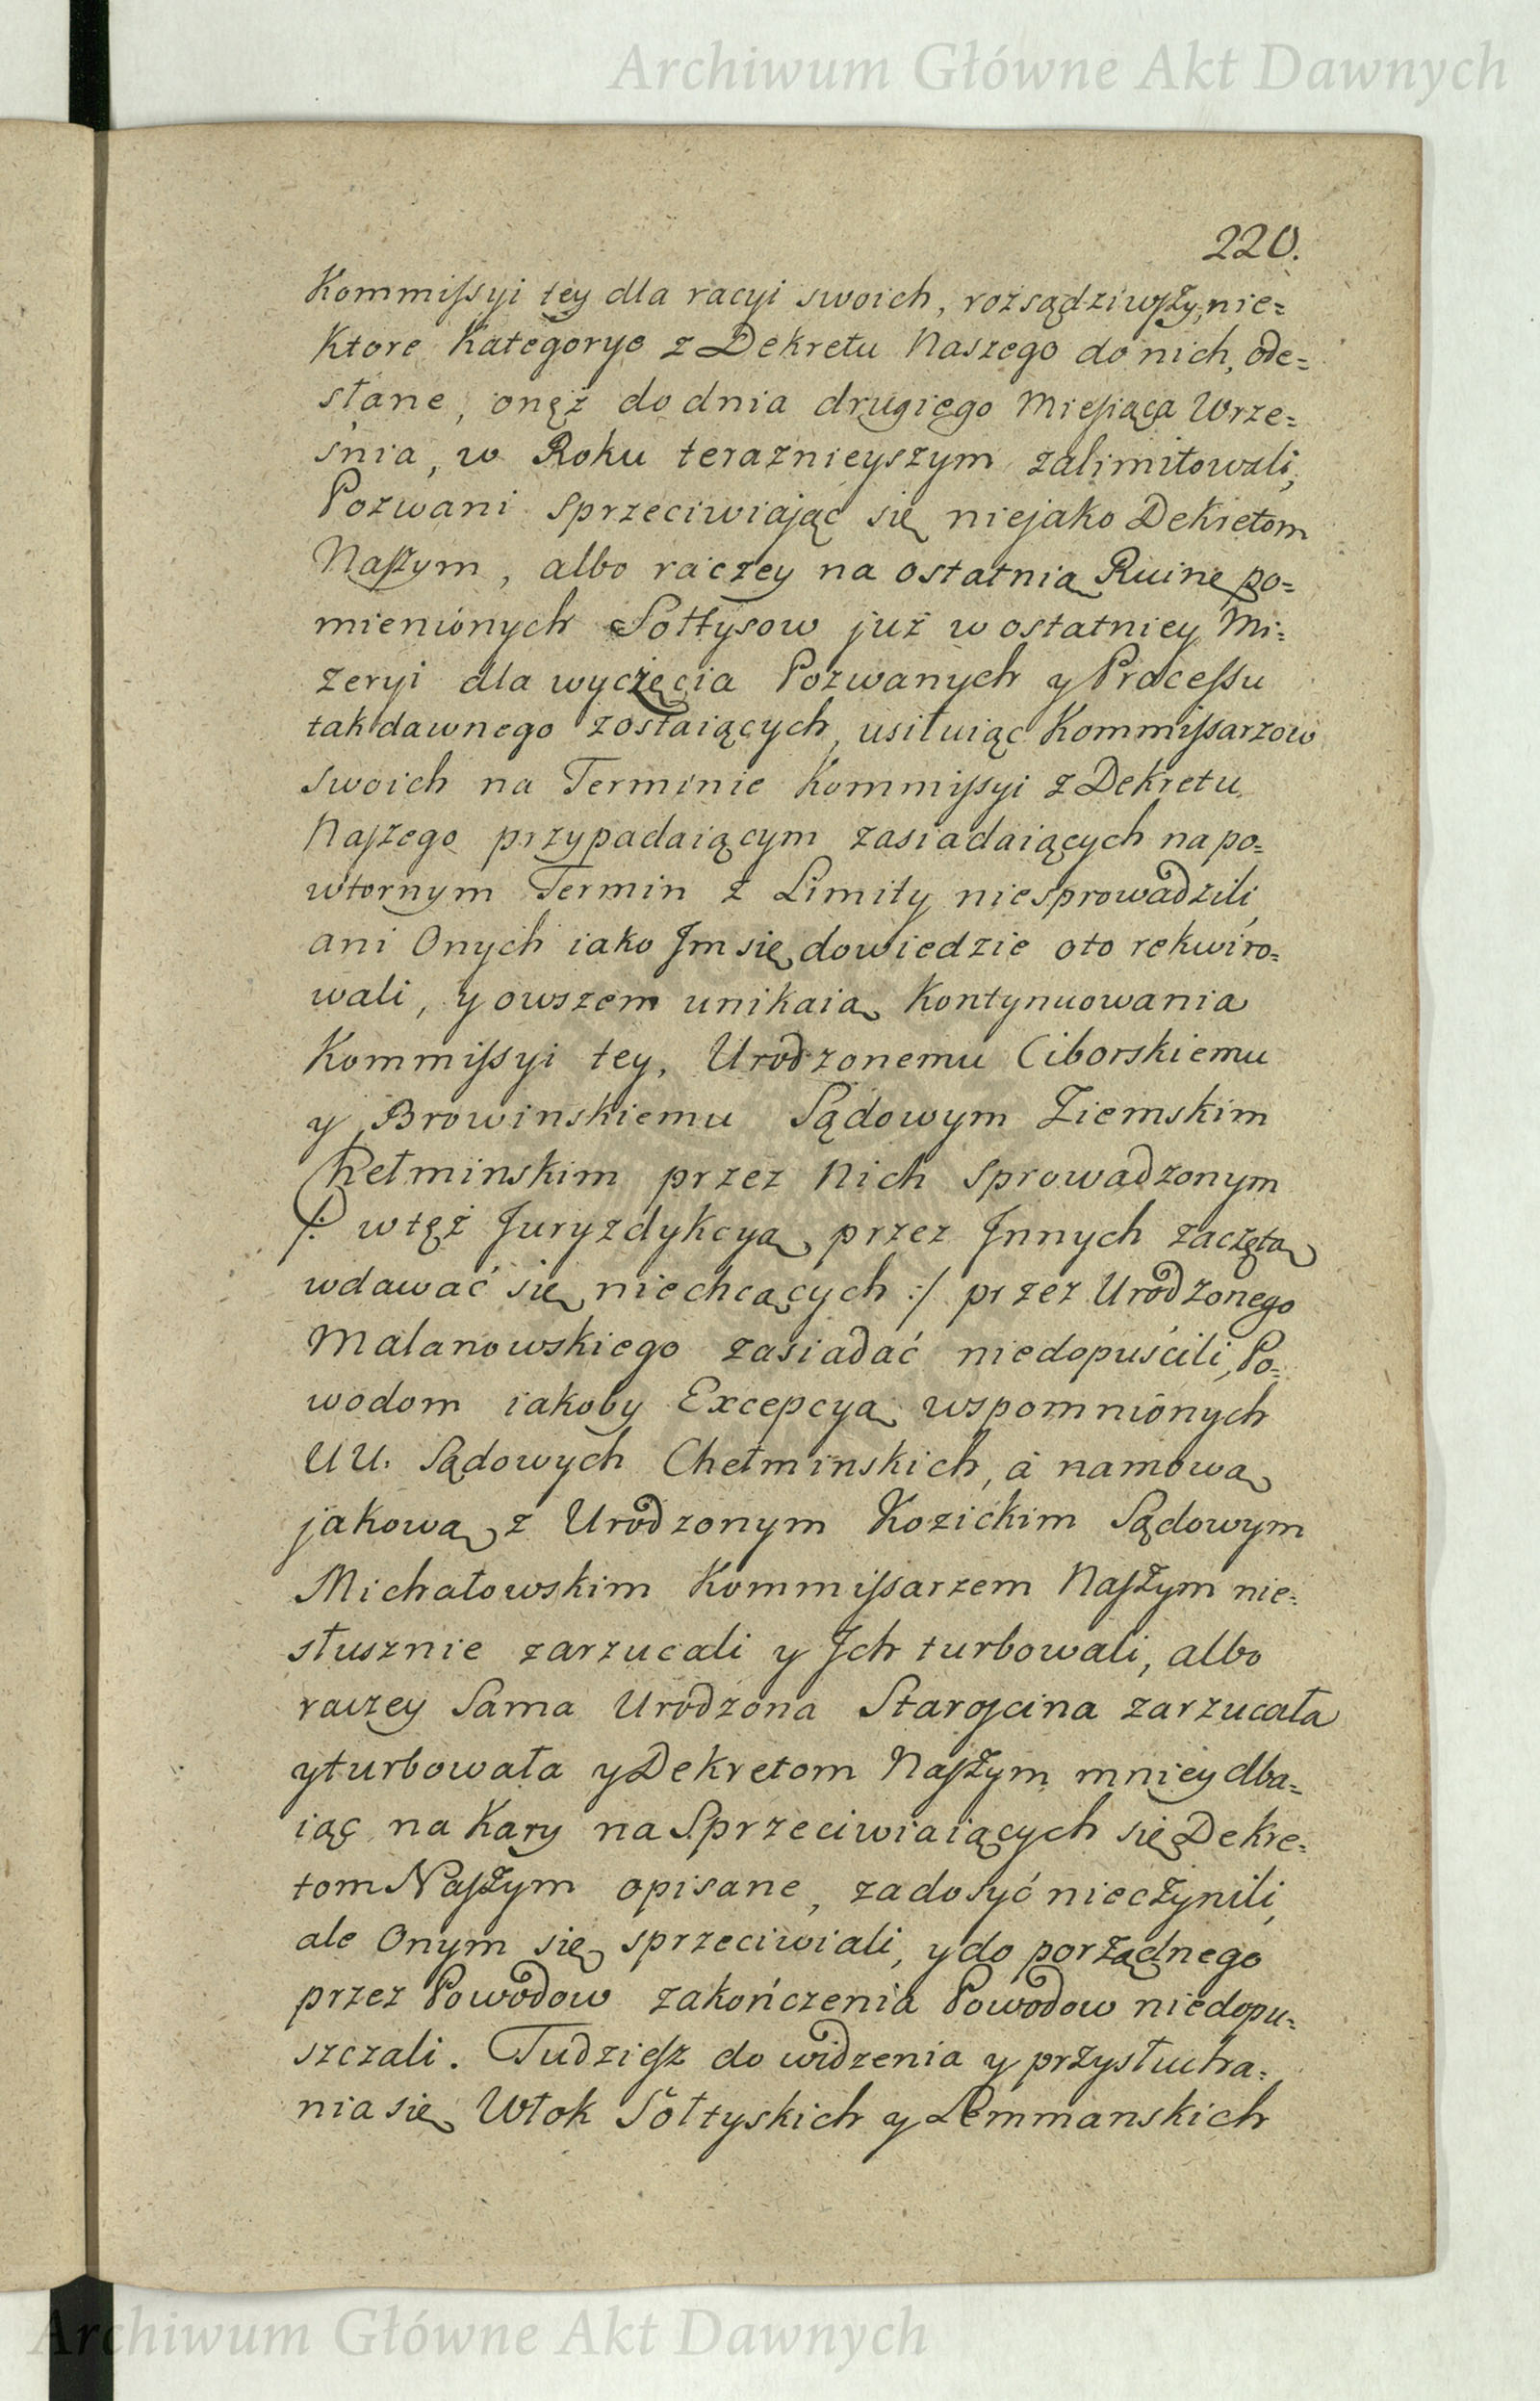 Archiwum Główne Akt Dawnych
220.
Kommiſsyi tey dla racyi swoich, rozsądziwſzy, nie=
Ktore Kategorye z Dekretu Naszego do nich, ode=
słane, onęż do dnia drugiego Mieſiąca Wrze=
śnia, w Roku teraznieyszym zalimitowali,
Pozwani sprzeciwiając się niejako Dekretom
Naſzym, albo raczey na ostatnią Ruinę po=
mienionych Sołtysow już w ostatniey Mi=
zeryi dla wycżęcia Pozwanych y Proceſsu
tak dawnego zostaiących, usiłuiąc Kommiſsarzow
swoich na Terminie Kommiſsyi z Dekretu
Naſzego przypadaiącym zasiadaiących na po=
wtornym Termin z Limity niesprowadzili,
ani Onych iako Jm się dowiedzie oto rekwiro=
wali, y owszem unikaią Kontynuowania
Kommiſsyi tey, Urodzonemu Ciborskiemu
y Browinskiemu Sądowym Ziemskim
Chełminskim przez Nich sprowadzonym
/: w tęż Juryzdykcyą przez Jnnych zaczętą
wdawać się niechcących :/ przez Urodzonego
Malanowskiego zasiadać niedopuścili, Po=
wodom iakoby Excepcyą wspomnionych
UU. Sądowych Chełminskich, á namową
jakową z Urodzonym Kozickim Sądowym
Michałowskim Kommiſsarzem Naſzym nie=
słusznie zarzucali y Jch turbowali, albo
raczey Sama Urodzona Staroſcina zarzucała
y turbowała y Dekretom Naſzym mniey dba=
iąc na Kary na Sprzeciwiaiących się Dekre=
tom Naſzym opisane, zadosyć nieczynili,
ale Onym się sprzeciwiali, y do porządnego
przez Powodow zakończenia Powodow niedopu=
szczali. Tudzieſz do widzenia y przysłucha=
nia się Włok Sołtyskich y Lemmanskich
Archiwum Główne Akt Dawnych